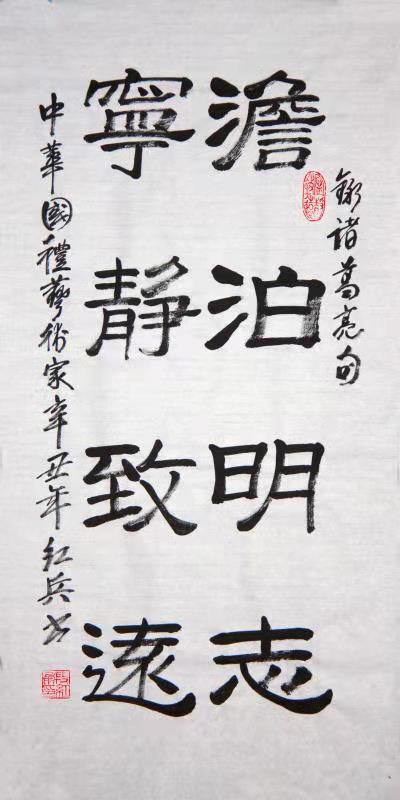 錄諸葛亮句
澹泊明志
寧靜致遠
中華國禮藝術家辛丑年紅兵书